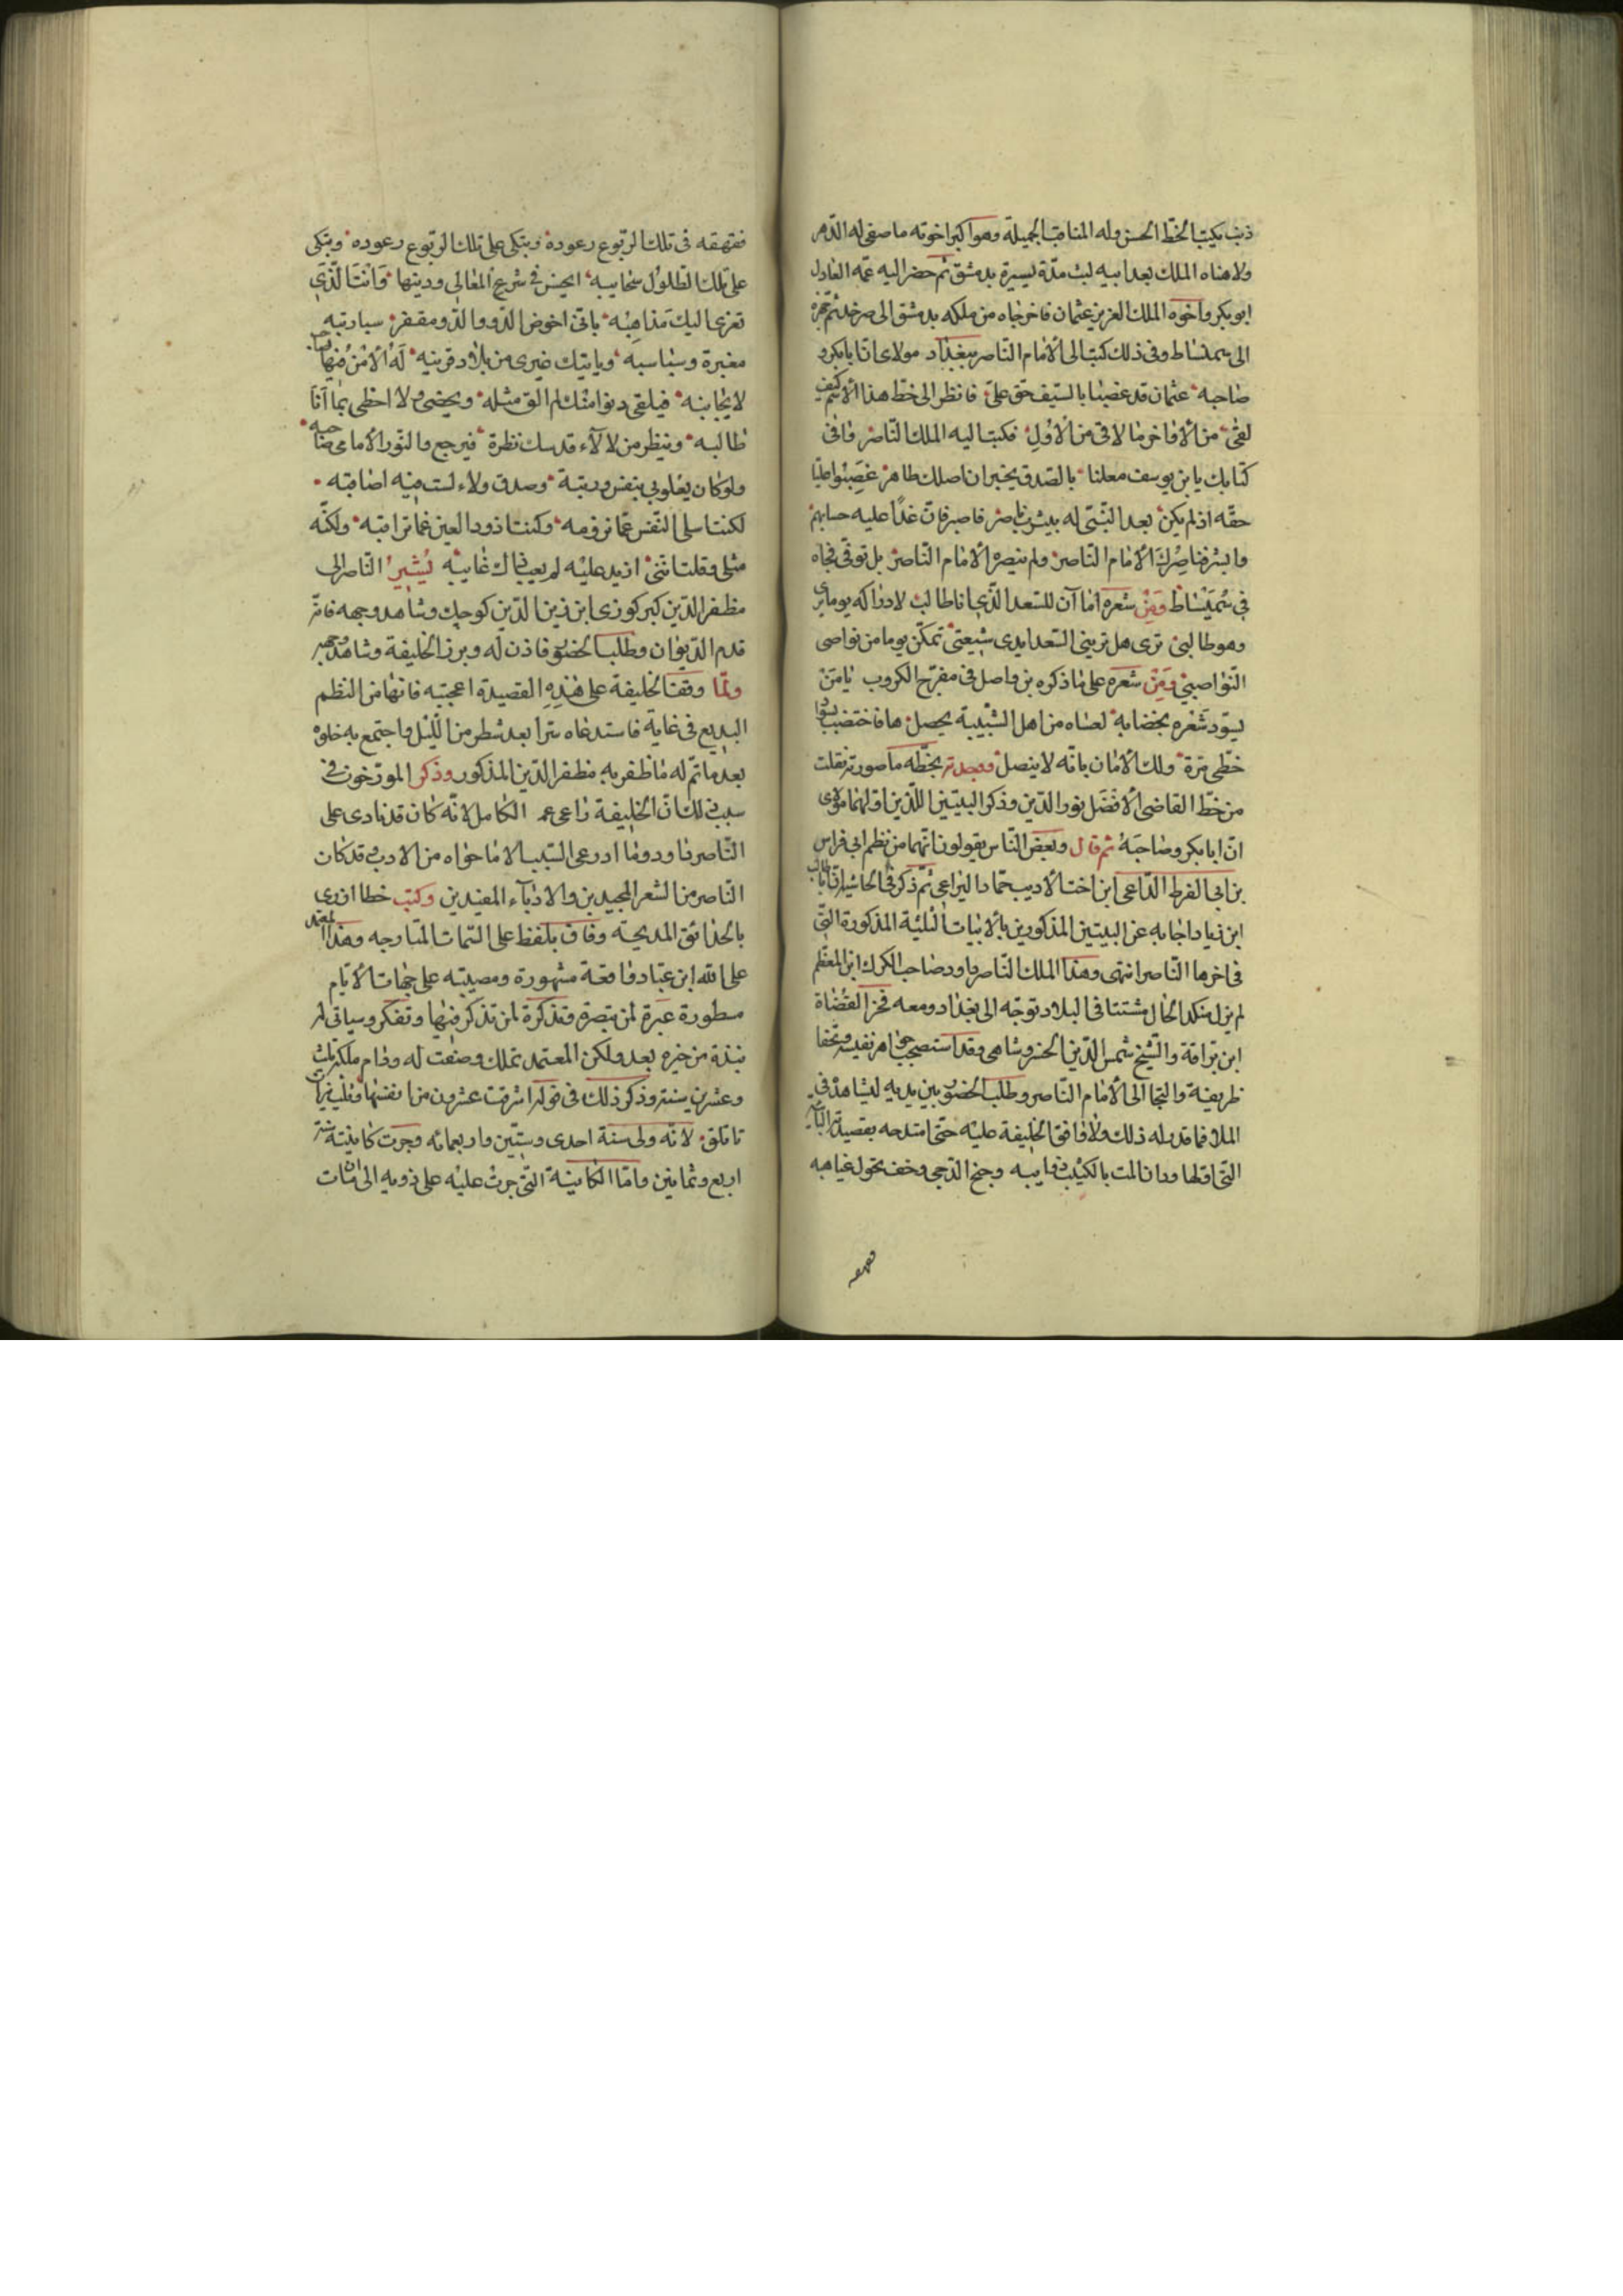 ذنب يكتب الخط الحسن وله المناقب الجميلة وهو اكبر اخوته ما صفى له الدهر
ولا هناه الملك بعد ابيه لبث مدة يسيرة بدمشق ثم حضر اليه عمه العادل
ابو بكر واخوه الملك العزيز عثمان فاخرجاه من ملكه بدمشق الى صرخد ثم جهزه
الى سمسياط وفى ذلك كتب الى الامام الناصر ببغداد مولاى ان ابا بكر و
صاحبه عثمان قد غصبا بالسيف حق على فانظر الى خط هذا الاسم كيف
لقى من الاواخر ما لاقى من الاول فكتب اليه الملك الناصر وافى
كتابك يا بن يوسف معلنا بالصدق يخبر ان اصلك طاهر غصبوا عليا
حقه اذ لم يكن بعد النبى له بيثرب ناصر فاصبر فان غدا عليه حسابهم
وابشر فناصرك الامام الناصر ولم ينصره الامام الناصر بل توفى فجاه
فى سميساط ومن شعره اما آن للسعد الذى انا طالب لادراكه يوما يرى
وهو طالبى ترى هل ترينى السعد ايدى شيعتى تمكن يوما من نواصى
النواصب ومن شعره على ما ذكره بن واصل فى مفرج الكروب يا من
يسود شعره بخضابه لعساه من اهل الشبيبة يحصل ها فاختضب بسواد
حظى مرة ولك الامان بانه لا ينصل ووجدت بخطه ما صورته نقلت
من خط القاضى الافضل نور الدين وذكر البيتين اللذين اولهما مولاى
ان ابا بكر وصاحبه ثم قال وبعض الناس يقولون انهما من نظم ابى فراس
بن ابى الفرط الداعى ابن اخت الاديب حماد اليراعى ثم ذكر فى الحاشية ان ابا طالب
ابن زياد اجابه عن البيتين المذكورين بالابيات الثلثة المذكورة التى
فى اخرها الناصر انتهى وهذا الملك الناصر داود صاحب الكرك ابن المعظم
لم يزل منكد الحال مشتتا فى البلاد توجه الى بغداد ومعه فخر القضاة
ابن بزاقة والشيخ شمس الدين الخسروشاهى وقد استصحب جواهر نفيسة وتحفا
ظريفة والتجا الى الامام الناصر وطلب الحضور بين يديه ليشاهد فى
الملا فما قدر له ذلك ولا وافق الخليفة عليه حتى امتدحه بقصيدته البائية
التى اولها ودان المت بالكثيب ذوايبه وجنح الدجى وخف تجول غياهبه
فقهقه
فقهقه فى تلك الربوع رعوده وتبكى على تلك الربوع رعوده وتبكى
على تلك الطلول سحايبه ايحسن فى شرع المعالى ودينها وانت الذى
تعزى اليك مذاهبه بانى اخوض الدو والدو مقفر سبارته
مغبرة وسباسبه وياتيك غيرى من بلاد قريبه له الامن فيها صاحب
لا يجانبه فيلقى دنوا منك لم الق مثله ويحضى ولا احظى بما انا
طالبه وينظر من لالاء قدسك نظرة فيرجع والنور الامامى صاحبه
ولو كان يعلونى بنفس ورتبة وصدق ولاء لست فيه اصاقبه
لكنت اسلى النفس عما ترومه وكنت اذود العين عما تراقبه ولكنه
مثلى وقلت اننى ازيد عليه لم يعب ذاك غايبه يشير الناصر الى
مظفر الدين كبركورى ابن زين الدين كوجك وشاهد وجهه فانه
قدم الديوان وطلب الحضور فاذن له وبرز الخليفة وشاهد وجهه
ولما وقف الخليفة على هذه القصيدة اعجبته فانها من النظم
البديع فى غاية فاستدعاه سرا بعد شطر من الليل واجتمع به خلوه
بعد ما تم له ما ظفر به مظفر الدين المذكور وذكر المورخون فى
سبب ذلك ان الخليفة راعى عمه الكامل لانه كان قد نادى على
الناصر داود وما ادرعى السبب الا ما حواه من الادب وقد كان
الناصر من الشعر المجيدين والادباء المفيدين وكتب خطا ازرى
بالحدائق المديحة وفاق بلفظ على السمات المتارجه وهذا المعتمد
على الله ابن عباد واقعة مشهورة ومصيبته على جبهات الايام
مسطورة عبرة لمن تبصره وتذكرة لمن تذكر فيها وتفكر وسياتى له
نبذة من خبره بعد ولكن المعتمد تملك وصنعت له ودام ملكه ثلث
وعشرين سنة وذكر ذلك فى قوله اشرقت عشرون من انفسها وثلث نيرات
تاتلق لانه ولى سنة احدى وستين واربعمائه وجرت كاينته سنة
اربع وثمانين واما الكاينة التى جرت عليه على ذويه الى ان مات